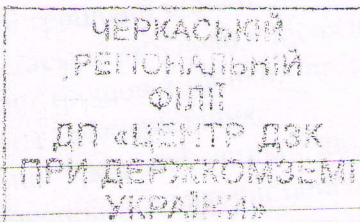 ЧЕРКАСЬКІЙ
РЕГІОНАЛЬНІЙ
ФІЛІЇ
ДП «ЦЕНТР ДЗК
ПРИ ДЕРЖКОМЗЕМІ
УКРАЇНИ»